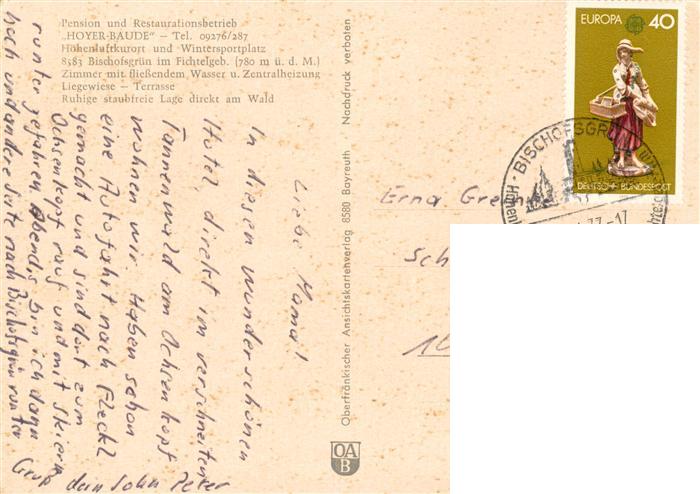 Pension und Restaurationsbetrieb
„HOYER-BAUDE" – Tel. 09276/287
Höhenluftkurort und Wintersportplatz
8583 Bischofsgrün im Fichtelgeb. (780 m ü. d. M.)
Zimmer mit fließendem Wasser u. Zentralheizung
Liegewiese – Terrasse
Ruhige staubfreie Lage direkt am Wald
Liebe Mama!
In diesen wunderschönen
Hotel, direkt im verschneiten
Tannenwald am Ochsenkopf
wohnen wir. Haben schon
eine Autofahrt nach Fleckl
gemacht und sind dort zum
Ochsenkopf rauf und mit Skiern
runter gefahren. Abends bin ich dann
hoch und andere Seite nach Bischofsgrün runter
Gruß dein Sohn Peter
Oberfränkischer Ansichtskartenverlag 8580 Bayreuth Nachdruck verboten
OA
B
EUROPA 40
DEUTSCHE BUNDESPOST
BISCHOFSGR
77-17
Erna
Sch